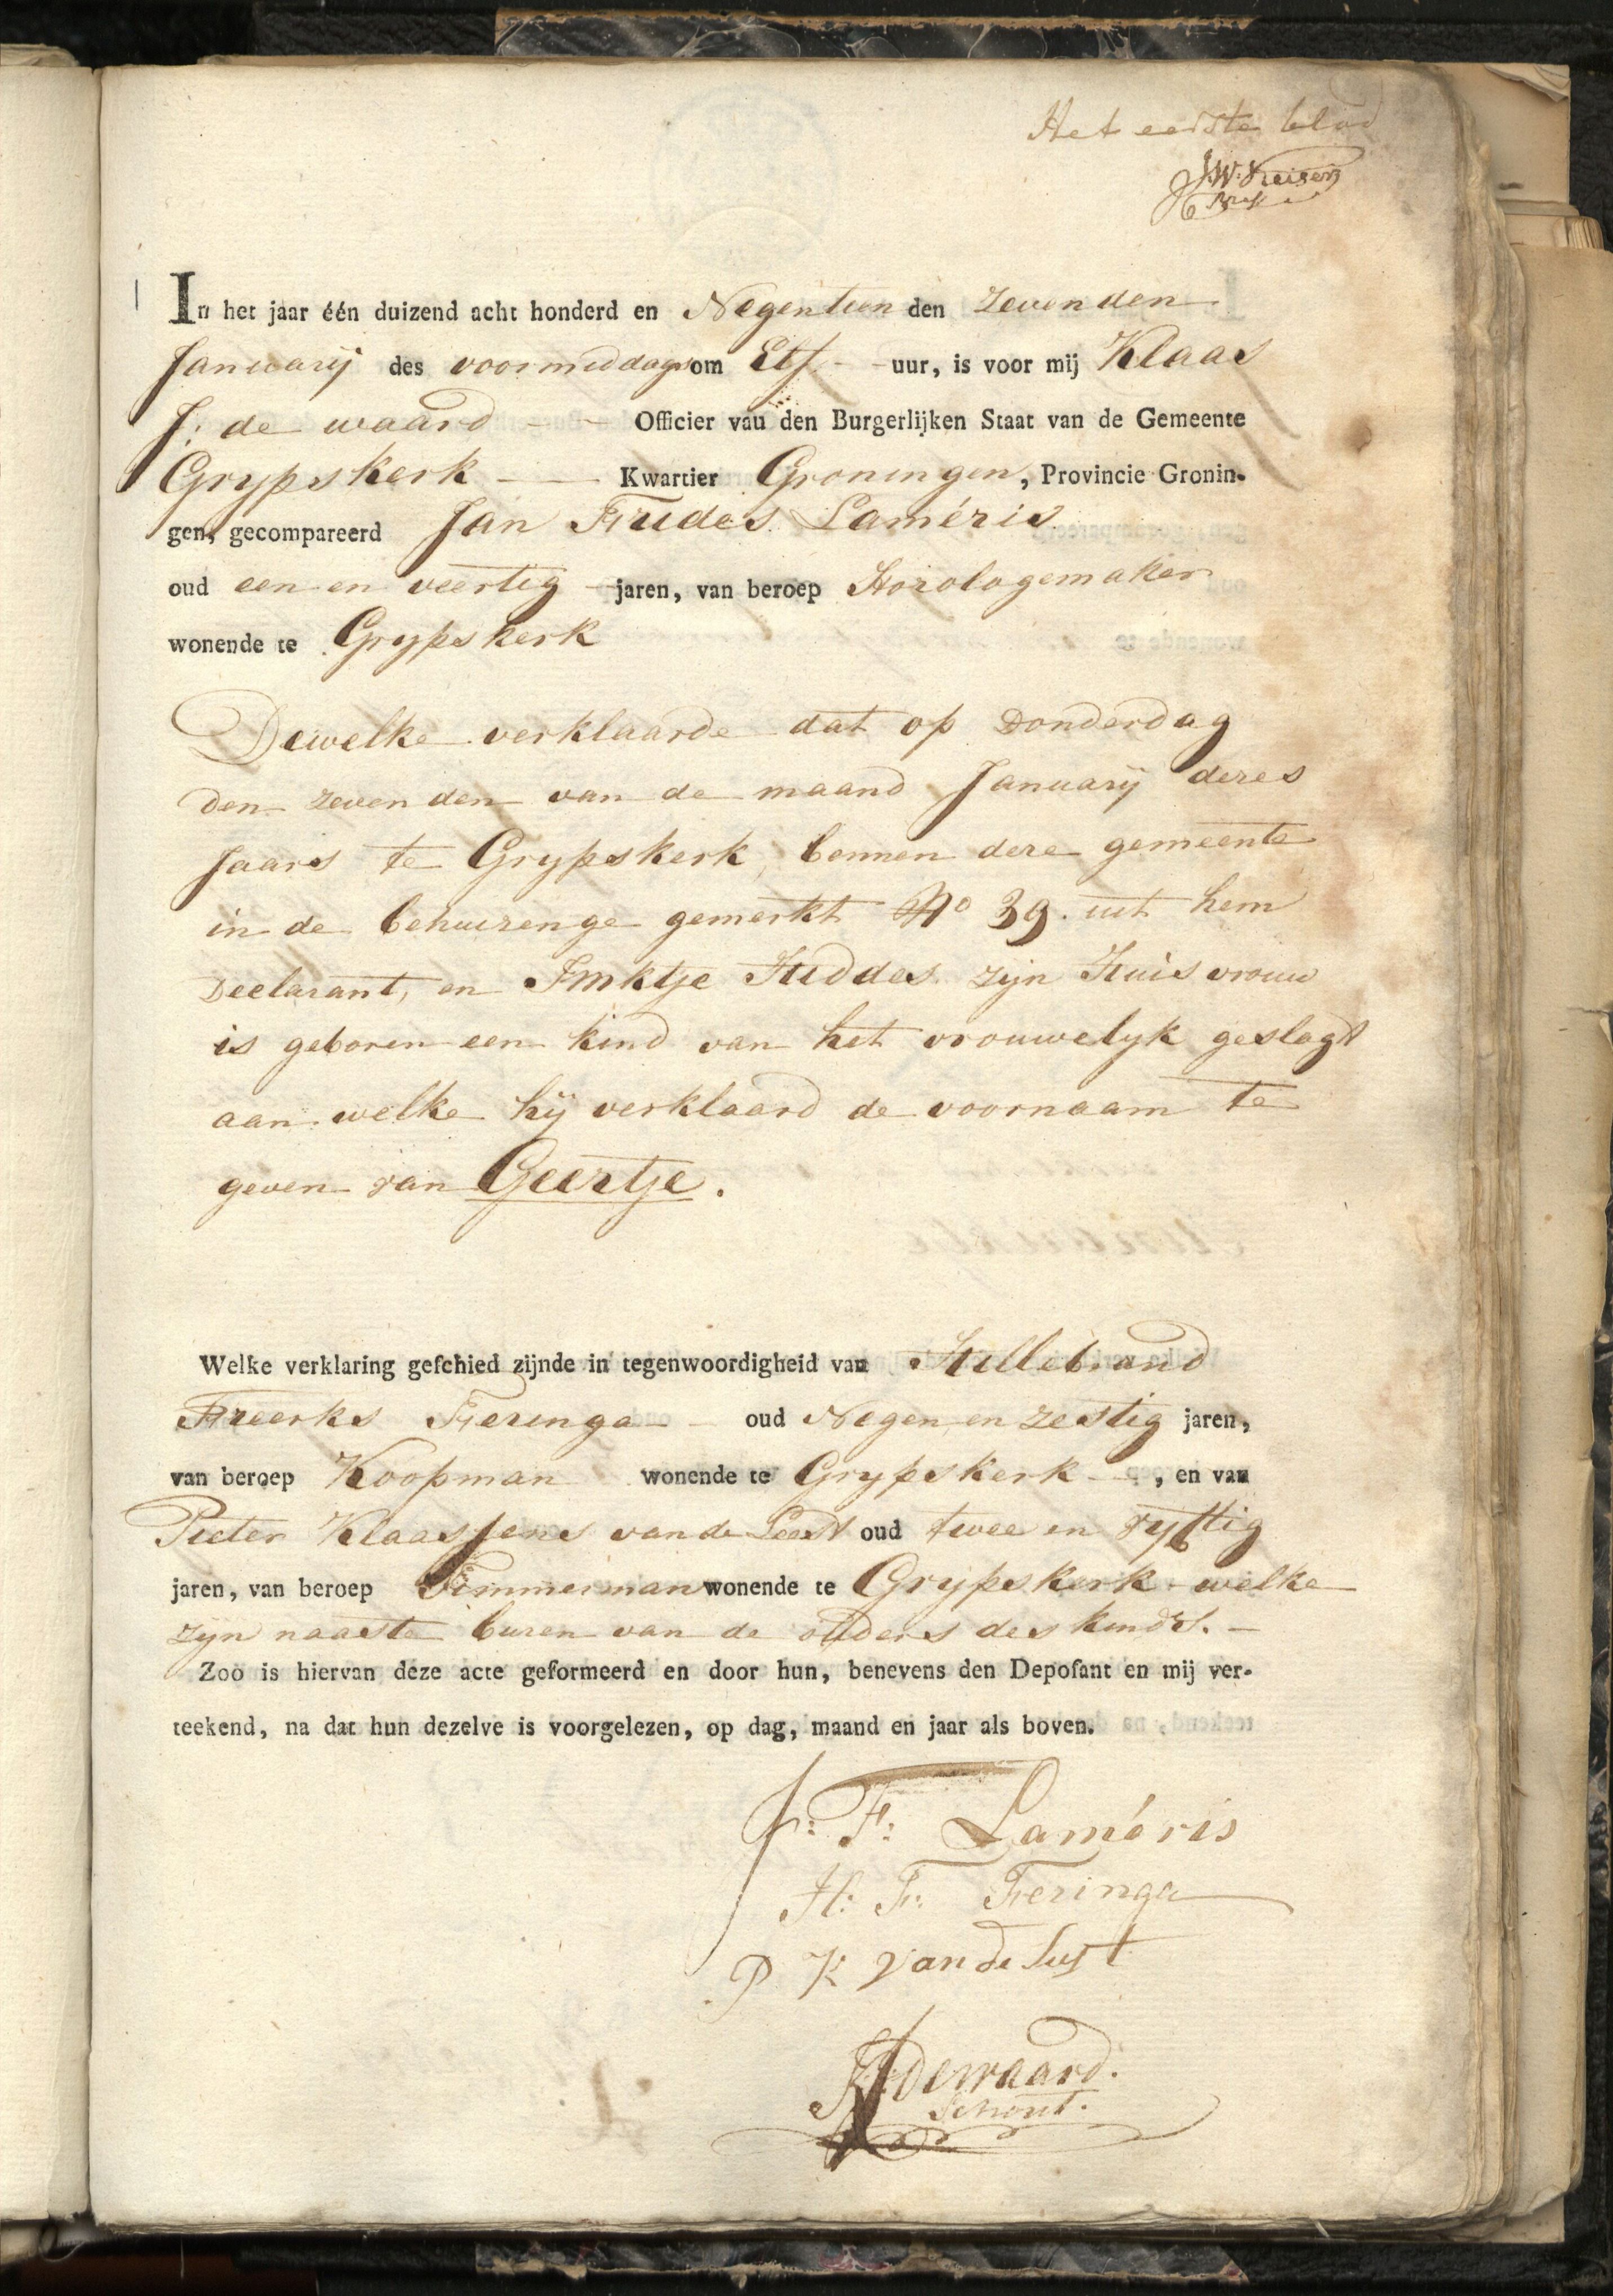 Het eerste blad
J. W. Keiser
1
In het jaar één duizend acht honderd en Negentien den zevenden
Januarij des voormiddags om Elf uur, is voor mij Klaas
J: de waard Officier van den Burgerlijken Staat van de Gemeente
Grypskerk Kwartier Groningen, Provincie Gronin-
gen, gecompareerd Jan Fredes Laméris
oud een en veertig jaren, van beroep Horologemaker
wonende te Grypskerk
Dewelke verklaarde dat op Donderdag
den zevenden van de maand Januarij dezes
Jaars te Grypskerk, bennen deze gemeente
in de behuizenge gemerkt No 39. uit hem
Declarant, en Imktje Heddes zijn Huisvrouw
is geboren een kind van het vrouwelyk geslagt
aan welke hij verklaard de voornaam te
geven van Geertje.
Welke verklaring geschied zijnde in tegenwoordigheid van Hillebrand
Freerks Feringa oud Negen en zestig jaren,
van beroep Koopman wonende te Grypskerk, en van
Pieter Klaassens van de Leest oud twee en vyftig
jaren, van beroep Timmerman wonende te Grypskerk welke
zijn naaste buren van de ouders des kinds.
Zoo is hiervan deze acte geformeerd en door hun, benevens den Deposant en mij ver-
teekend, na dat hun dezelve is voorgelezen, op dag, maand en jaar als boven.
J: F: Laméris
H: F: Feringa
P K van de Leest
KJ de Waard.
Schout.